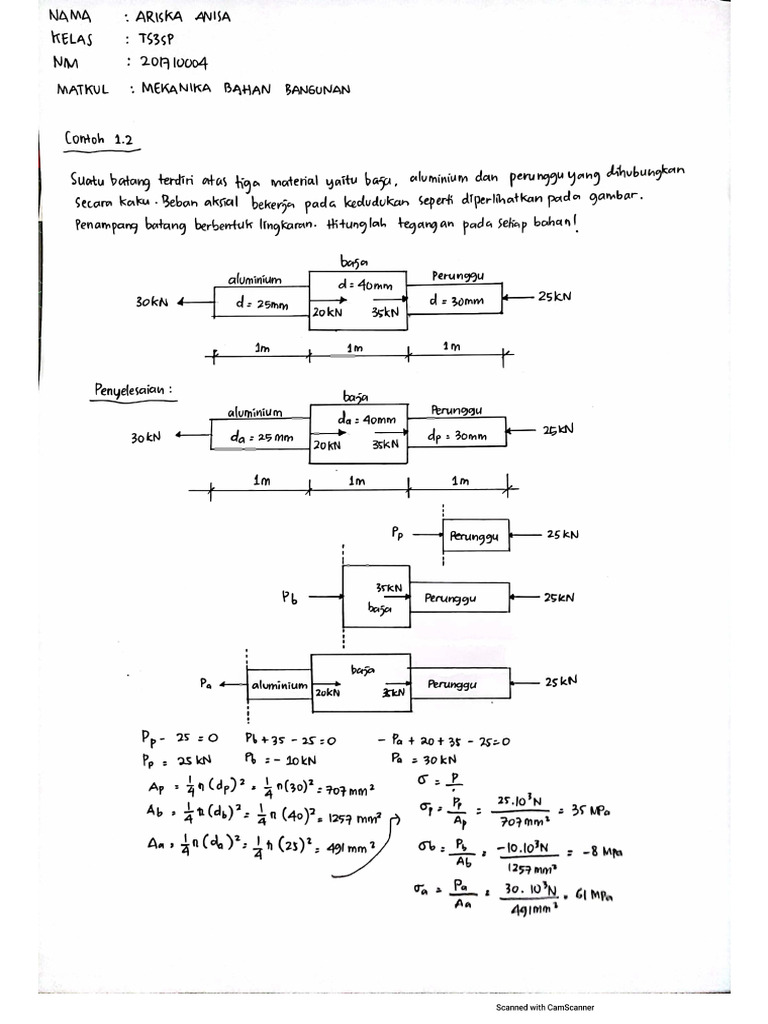 NAMA : ARISKA ANISA
KELAS : TS3SP
NIM : 201710004
MATKUL : MEKANIKA BAHAN BANGUNAN
Contoh 1.2
Suatu batang terdiri atas tiga material yaitu baja, aluminium dan perunggu yang dihubungkan
secara kaku. Beban aksial bekerja pada kedudukan seperti diperlihatkan pada gambar.
Penampang batang berbentuk lingkaran. Hitunglah tegangan pada setiap bahan!
baja
aluminium Perunggu
d = 40mm
30kN d = 25mm 20kN 35kN d = 30mm 25kN
1m 1m 1m
Penyelesaian :
baja
aluminium Perunggu
da = 40mm
30kN da = 25mm 20kN 35kN dp = 30mm 25kN
1m 1m 1m
Pp Perunggu 25kN
35kN
Pb baja Perunggu 25kN
baja
Pa aluminium 20kN 35kN Perunggu 25kN
Pp - 25 = 0 Pb + 35 - 25 = 0 - Pa + 20 + 35 - 25 = 0
Pp = 25 kN Pb = - 10kN Pa = 30 kN
Ap = 1/4 π (dp)² = 1/4 π (30)² = 707 mm²
Ab = 1/4 π (db)² = 1/4 π (40)² = 1257 mm²
Aa = 1/4 π (da)² = 1/4 π (25)² = 491 mm²
σ = P/
σp = Pp/Ap = 25.10³N/707mm² = 35 MPa
σb = Pb/Ab = -10.10³N/1257mm² = -8 Mpa
σa = Pa/Aa = 30.10³N/491mm² = 61 MPa
Scanned with CamScanner